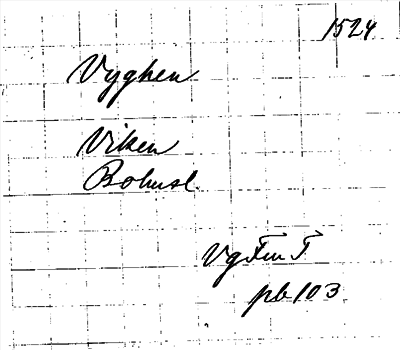 1524
Vyghen
Viken
Bohusl.
Vg Fm T
pb 103